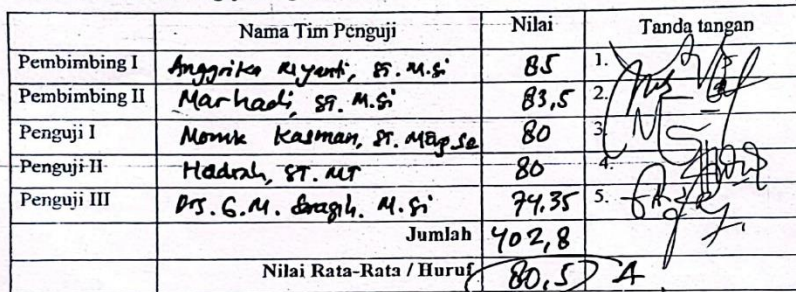 Nama Tim Penguji Nilai Tanda tangan
Pembimbing I Anggrika Riyanti, ST. M.Si 85 1.
Pembimbing II Marhadi, ST. M.Si 83,5 2.
Penguji I Monik Kasman, ST. 80 3.
Penguji II Hadrah, ST. MT 80 4.
Penguji III Drs. G.M. Saragih. M.Si 74,35 5.
Jumlah 402,8
Nilai Rata-Rata / Huruf 80,5 A